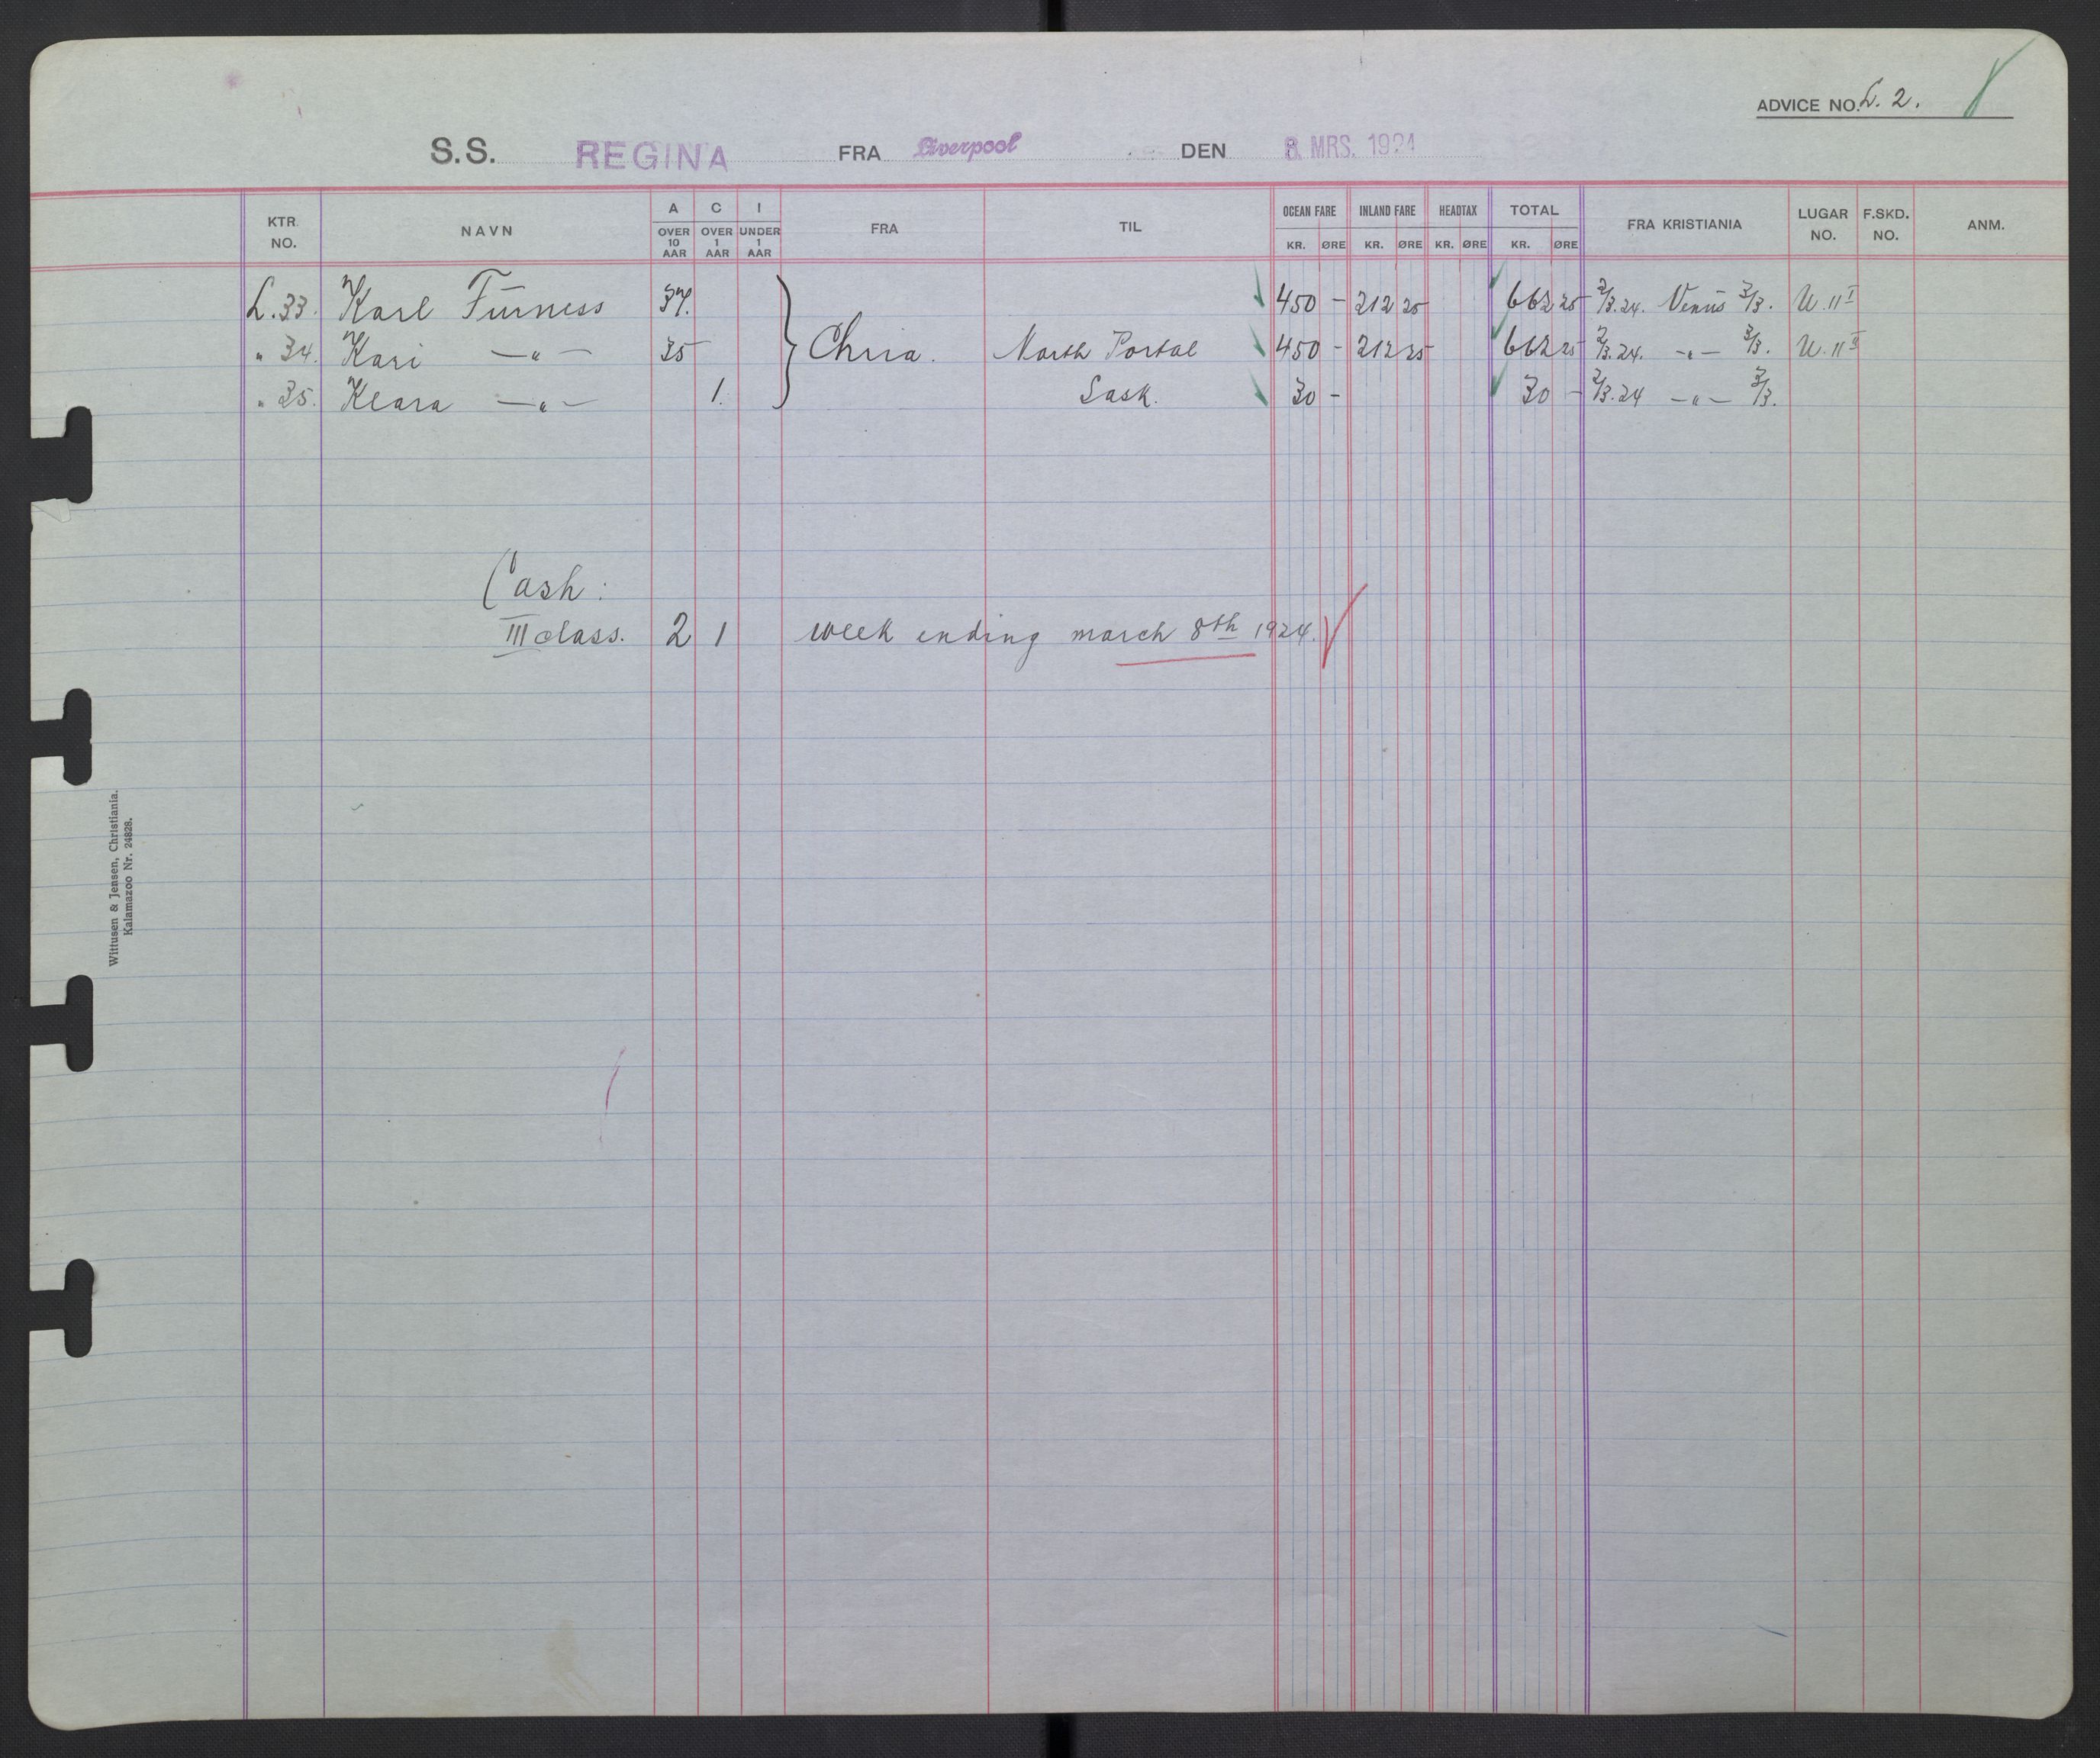 ADVICE NO. L. 2.
S.S. REGINA FRA Liverpool DEN 8. MRS. 1924
KTR. NO. NAVN A OVER 10 AAR C OVER 1 AAR I UNDER 1 AAR FRA TIL OCEAN FARE KR. ØRE INLAND FARE KR. ØRE HEADTAX KR. ØRE TOTAL KR. ØRE FRA KRISTIANIA LUGAR NO. F.SKD. NO. ANM.
L. 33. Karl Furness 37. 450 - 212 25 662 25 2/3.24. Venus 3/3. U. 11 I
" 34. Kari —"— 35 Chria. North Portal 450 - 212 25 662 25 2/3.24. —"— 3/3. U. 11 II
" 35. Klara —"— 1. Sask. 30 - 30 - 2/3.24 —"— 3/3.
Cash:
III class. 2 1 week ending march 8th 1924.
Wittusen & Jensen, Christiania.
Kalamazoo Nr. 24828.